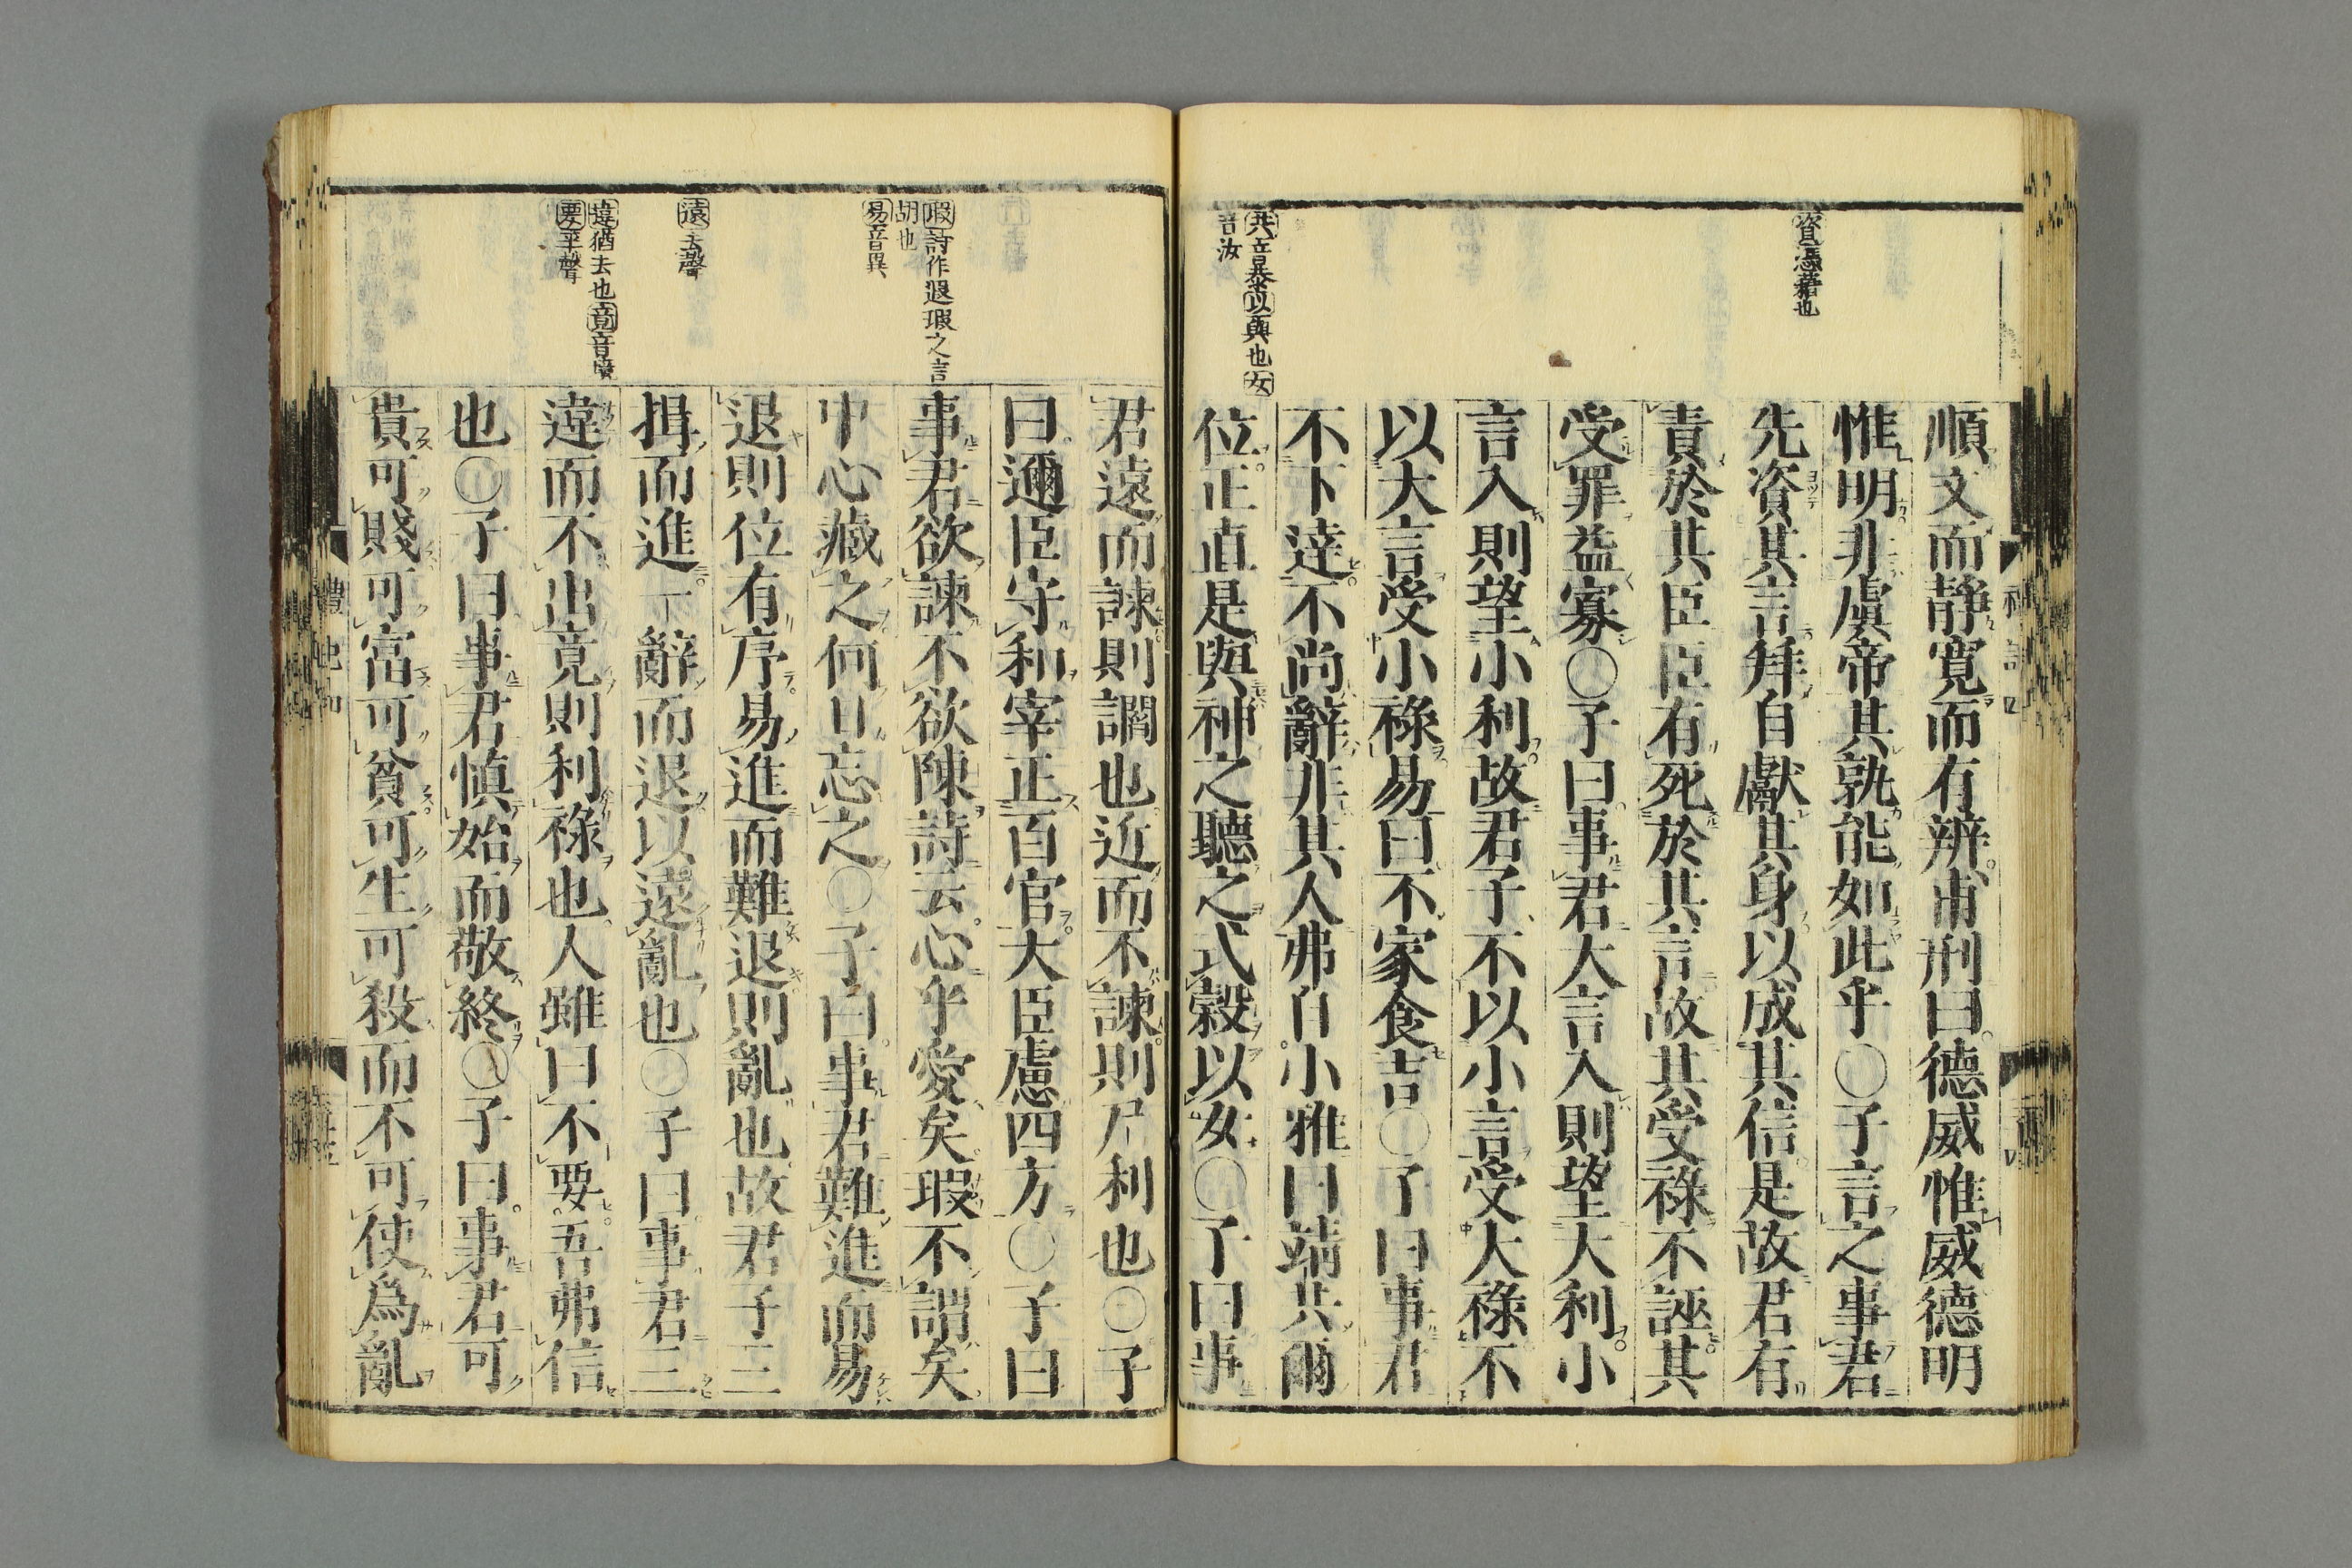 資憑藉也
共音恭以與也女
音汝
順文而静寛而有辨甫刑曰德威惟威德明
惟明非虞帝其孰能如此乎○子言之事君
先資其言拜自獻其身以成其信是故君有
責於其臣臣有死於其言故其受祿不誣其
受罪益寡○子曰事君大言入則望大利小
言入則望小利故君子不以小言受大祿不
以大言受小祿易曰不家食吉○子曰事君
不下逹不尚辭非其人弗自小雅曰靖共爾
位正直是與神之聽之式穀以女○子曰事
瑕詩作遐瑕之言
胡也
易音異
遠去聲
違猶去也竟音境
要平聲
君遠而諫則讇也近而不諫則尸利也○子
曰邇臣守和宰正百官大臣慮四方○子曰
事君欲諫不欲陳詩云心乎愛矣瑕不謂矣
中心藏之何日忘之○子曰事君難進而易
退則位有序易進而難退則亂也故君子三
揖而進一辭而退以遠亂也○子曰事君三
違而不出竟則利祿也人雖曰不要吾弗信
也○子曰事君慎始而敬終○子曰事君可
貴可賤可富可貧可生可殺而不可使爲亂
禮記四